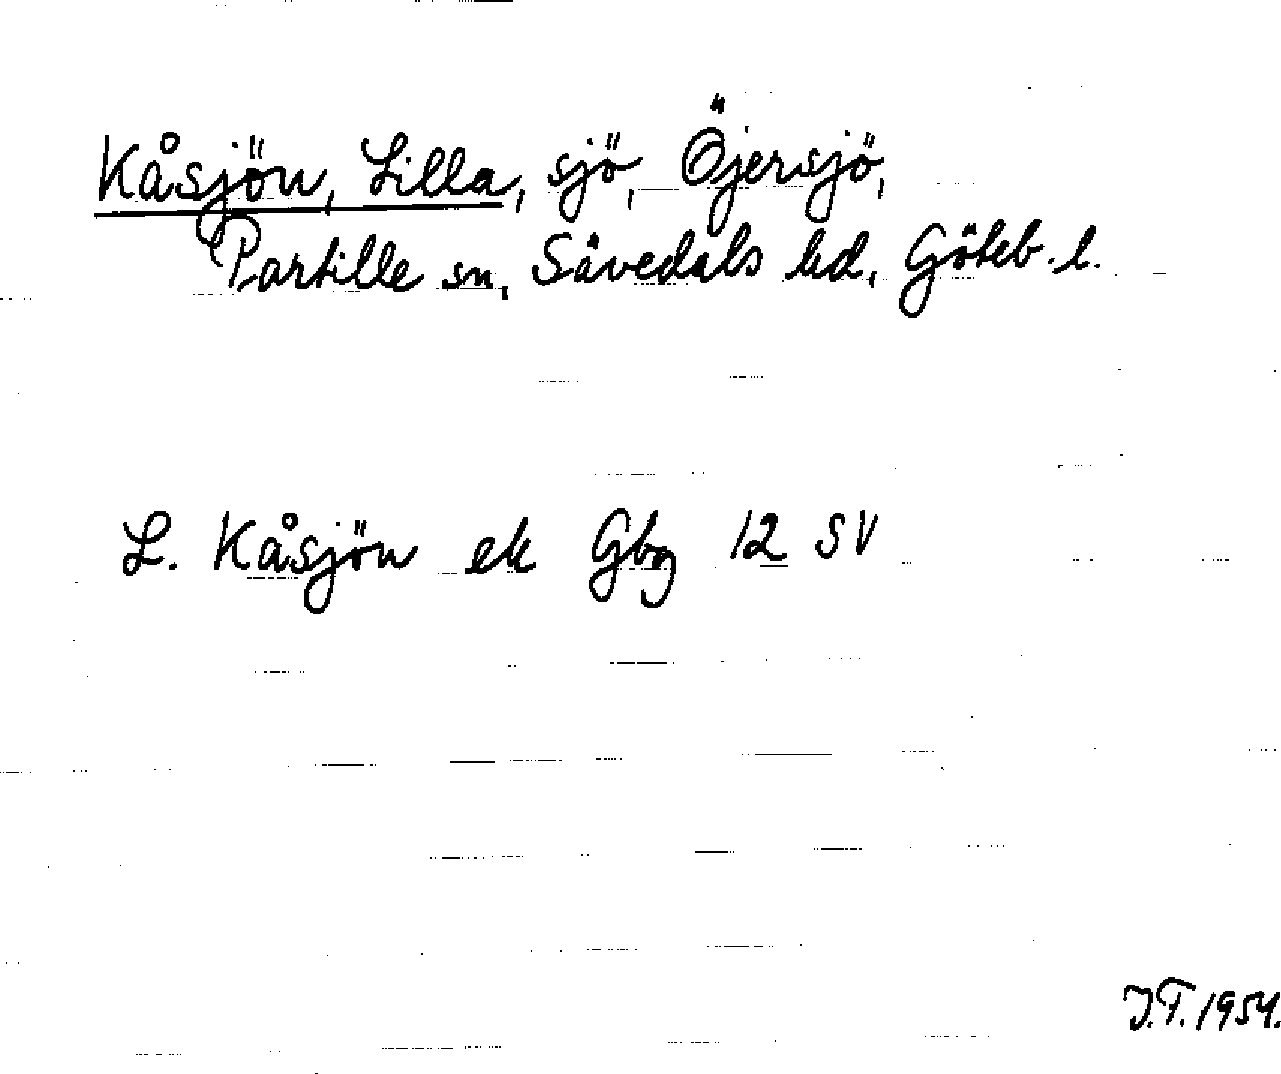 Kåsjön, Lilla, sjö, Öjersjö,
Partille sn, Sävedals hd, Göteb. l.
L. Kåsjön ek Gbg 12 SV
J.T. 1954.